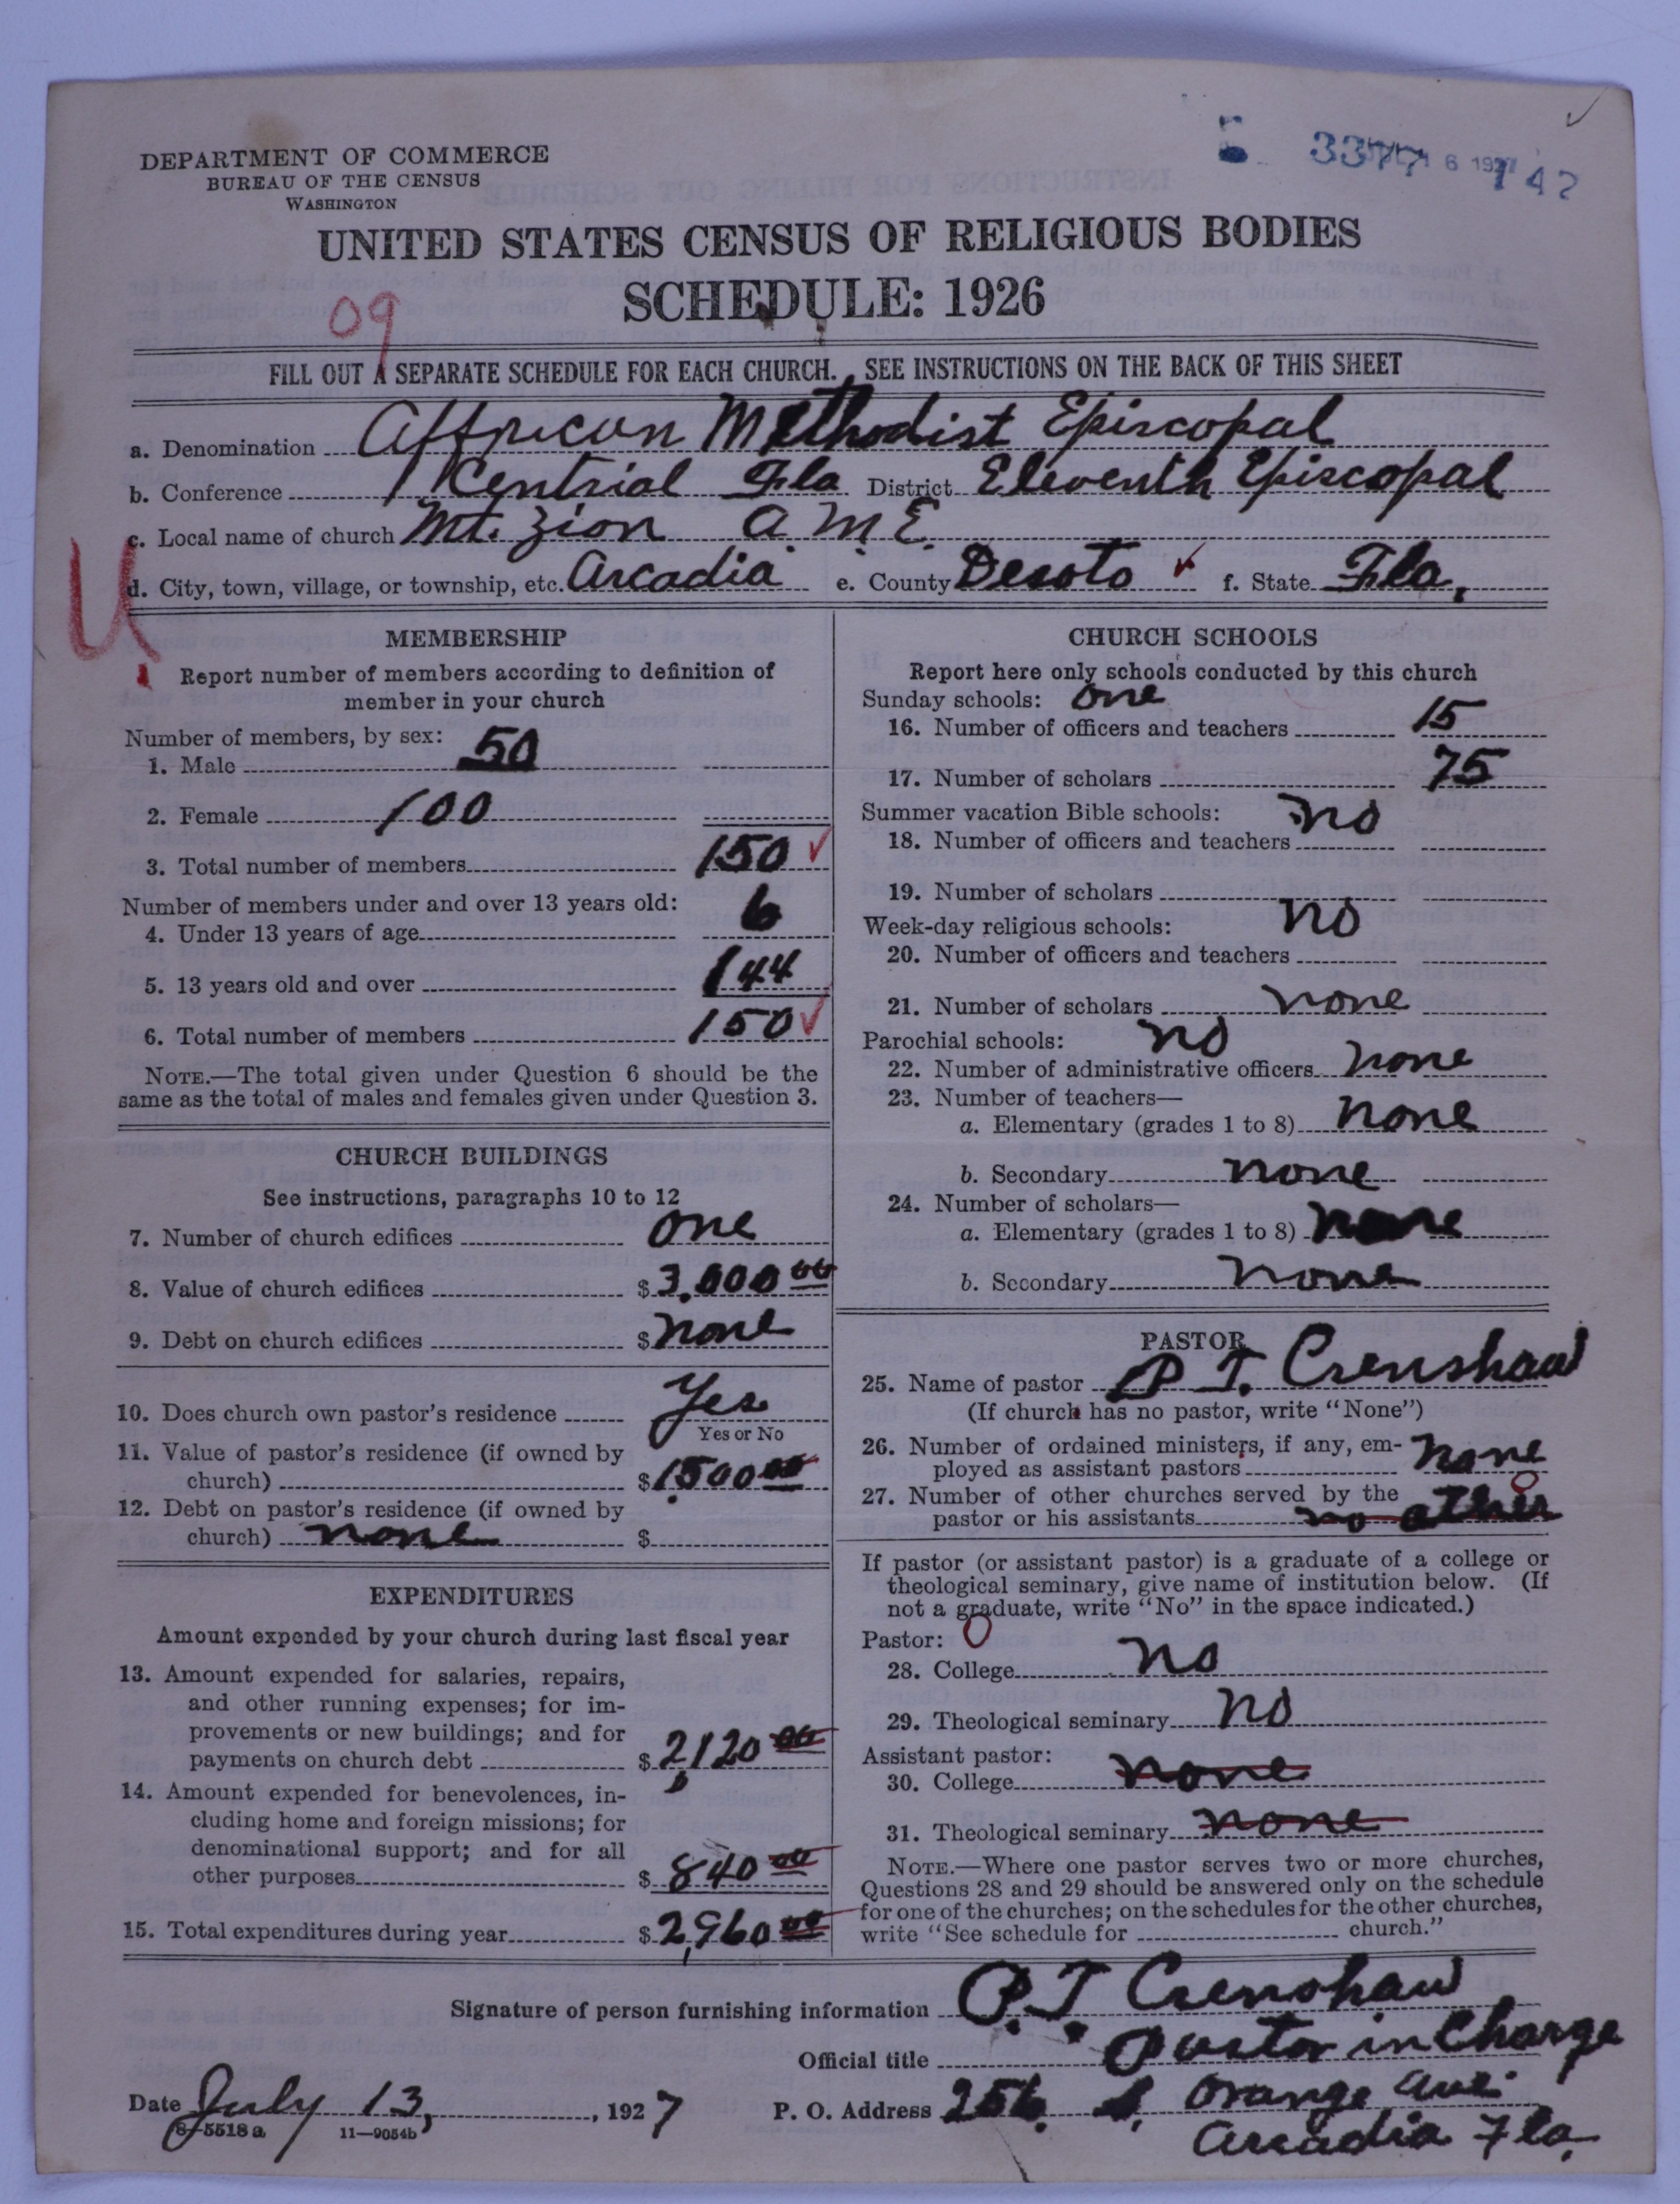 DEPARTMENT OF COMMERCE
BUREAU OF THE CENSUS
WASHINGTON
UNITED STATES CENSUS OF RELIGIOUS BODIES
SCHEDULE: 1926
09
FILL OUT A SEPARATE SCHEDULE FOR EACH CHURCH. SEE INSTRUCTIONS ON THE BACK OF THIS SHEET
a. Denomination Affricun Methodist Episcopal
b. Conference Centrial Fla District Eleventh Episcopal
c. Local name of church Mt. Zion A. M. E.
d. City, town, village, or township, etc. Arcadia e. County Desoto f. State Fla.
U
MEMBERSHIP
Report number of members according to definition of
member in your church
Number of members, by sex:
1. Male 50
2. Female 100
3. Total number of members 150
Number of members under and over 13 years old:
4. Under 13 years of age 6
5. 13 years old and over 144
6. Total number of members 150
NOTE.—The total given under Question 6 should be the
same as the total of males and females given under Question 3.
CHURCH BUILDINGS
See instructions, paragraphs 10 to 12
7. Number of church edifices one
8. Value of church edifices $3,000 00
9. Debt on church edifices $none
10. Does church own pastor's residence Yes
Yes or No
11. Value of pastor's residence (if owned by
church) $1,500 00
12. Debt on pastor's residence (if owned by
church) none $
EXPENDITURES
Amount expended by your church during last fiscal year
13. Amount expended for salaries, repairs,
and other running expenses; for im-
provements or new buildings; and for
payments on church debt $2,120 00
14. Amount expended for benevolences, in-
cluding home and foreign missions; for
denominational support; and for all
other purposes $840 00
15. Total expenditures during year $2,960 00
CHURCH SCHOOLS
Report here only schools conducted by this church
Sunday schools: one
16. Number of officers and teachers 15
17. Number of scholars 75
Summer vacation Bible schools: no
18. Number of officers and teachers
19. Number of scholars
Week-day religious schools: no
20. Number of officers and teachers
21. Number of scholars none
Parochial schools: no
22. Number of administrative officers none
23. Number of teachers—
a. Elementary (grades 1 to 8) none
b. Secondary none
24. Number of scholars—
a. Elementary (grades 1 to 8) none
b. Secondary none
PASTOR
25. Name of pastor P. T. Crenshaw
(If church has no pastor, write "None")
26. Number of ordained ministers, if any, em-
ployed as assistant pastors none
27. Number of other churches served by the
pastor or his assistants no other
If pastor (or assistant pastor) is a graduate of a college or
theological seminary, give name of institution below. (If
not a graduate, write "No" in the space indicated.)
Pastor: 0
28. College no
29. Theological seminary no
Assistant pastor:
30. College none
31. Theological seminary none
NOTE.—Where one pastor serves two or more churches,
Questions 28 and 29 should be answered only on the schedule
for one of the churches; on the schedules for the other churches,
write "See schedule for church."
Signature of person furnishing information P. T. Crenshaw
Official title Pastor in Charge
Date July 13, 1927 P. O. Address 256 Orange Ave.
8-5518a 11-9054b Arcadia Fla.